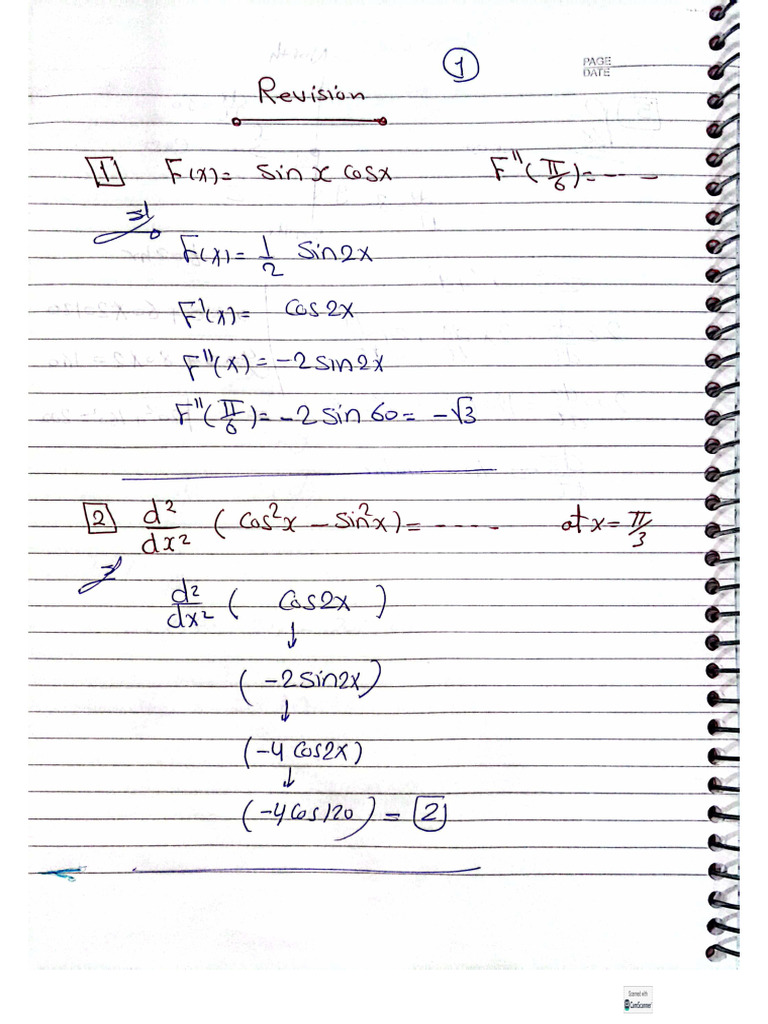 1
PAGE
DATE
Revision
1 F(x) = sin x cosx F''(π/6) = -- -
F(x) = 1/2 sin2x
F'(x) = cos2x
F''(x) = -2sin2x
F''(π/6) = -2 sin 60 = -√3
2 d²/dx² (cos²x - sin²x) = ----- at x = π/3
d²/dx² ( cos2x )
↓
(-2sin2x)
↓
(-4 cos2x)
↓
(-4cos120) = 2
Scanned with
CamScanner